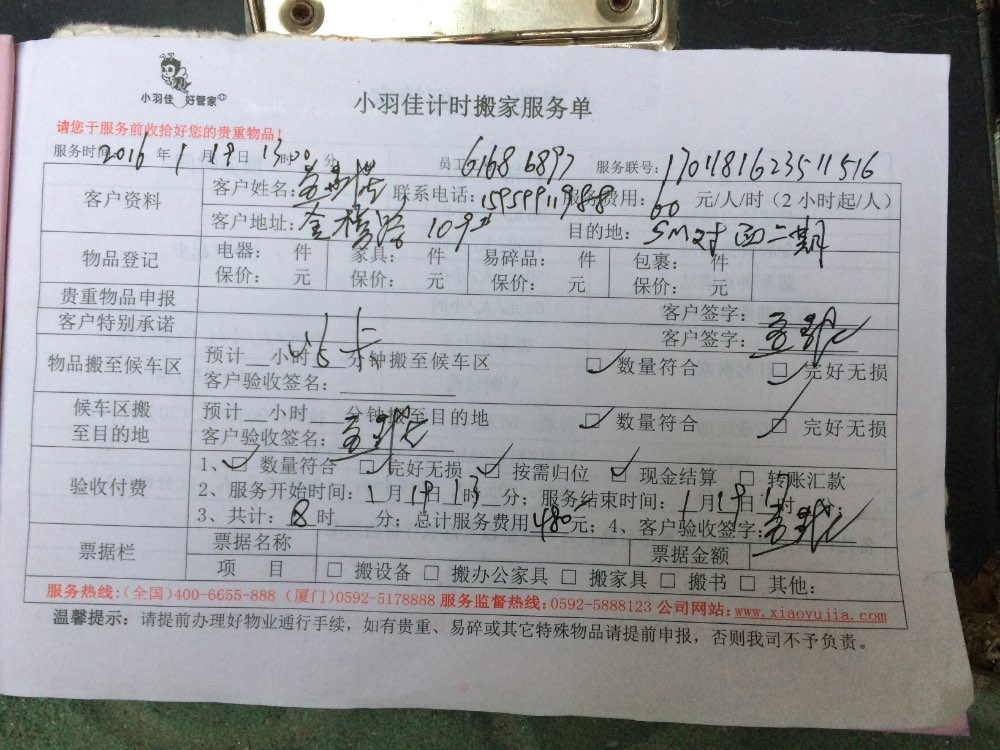 小羽佳 好管家
小羽佳计时搬家服务单
请您于服务前收拾好您的贵重物品！
服务时间 2016 年 1 月 19 日 13 时 00 分 员工 6168 6897 服务联号: 1701181623511516
客户资料 客户姓名: 联系电话: 15959911988 服务费用: 60 元/人/时（2 小时起/人）
客户地址: 109# 目的地: SM对面二期
物品登记 电器: 件 家具: 件 易碎品: 件 包裹: 件
保价: 元 保价: 元 保价: 元 保价: 元
贵重物品申报 客户签字:
客户特别承诺 客户签字:
物品搬至候车区 预计__小时__分钟搬至候车区 ☑ 数量符合 ☑ 完好无损
客户验收签名:
候车区搬至目的地 预计__小时__分钟搬至目的地 ☑ 数量符合 ☑ 完好无损
客户验收签名:
验收付费 1、☑ 数量符合 ☑ 完好无损 ☑ 按需归位 ☑ 现金结算 □ 转账汇款
2、服务开始时间: 1 月 19 日 13 时__分; 服务结束时间: 1 月 19 日 时 分;
3、共计: 8 时__分; 总计服务费用 480 元; 4、客户验收签字:
票据栏 票据名称 票据金额
项 目 □ 搬设备 □ 搬办公家具 □ 搬家具 □ 搬书 □ 其他:
服务热线:(全国)400-6655-888 (厦门)0592-5178888 服务监督热线:0592-5888123 公司网站:www.xiaoyujia.com
温馨提示：请提前办理好物业通行手续，如有贵重、易碎或其它特殊物品请提前申报，否则我司不予负责。